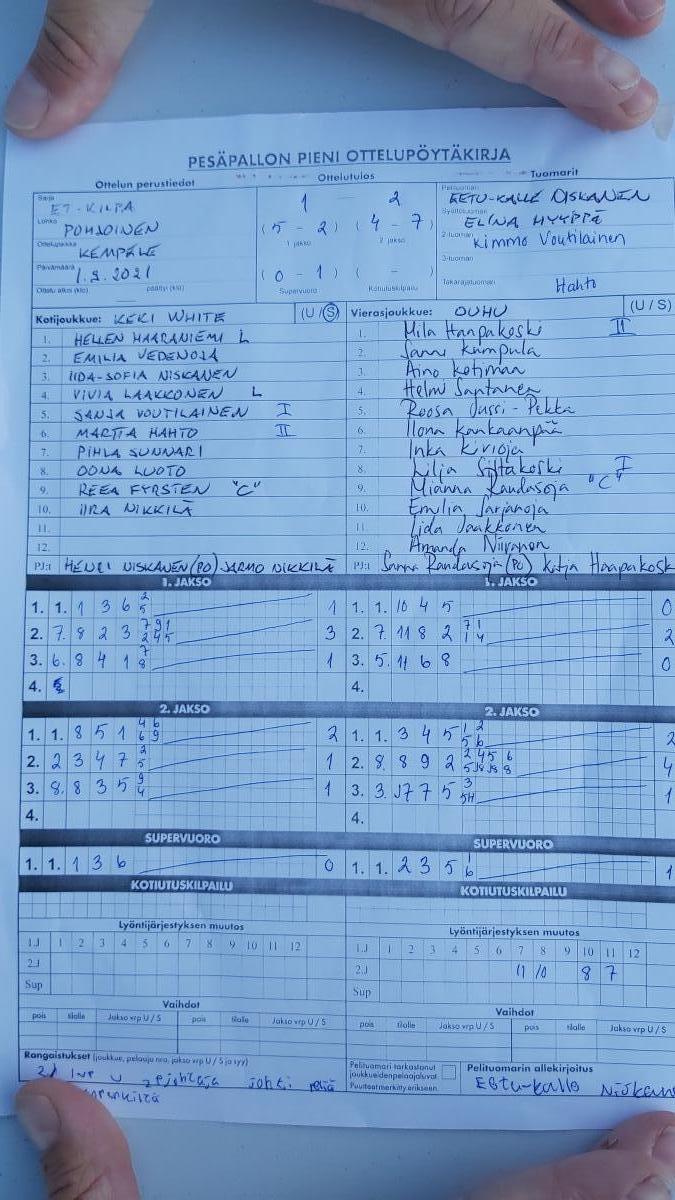 PESÄPALLON PIENI OTTELUPÖYTÄKIRJA
Ottelun perustiedot
Ottelutulos
Tuomarit
Sarja
ET-KILPA
Lohko
POHJOINEN
Ottelupaikka
KEMPELE
Päivämäärä
1.9.2021
Ottelu alkoi (klo) päättyi (klo)
1 — 2
(5 - 2) (4 - 7)
1 jakso 2 jakso
(0 - 1) ( - )
Supervuoro Kotiutuskilpailu
Pelituomari
EETU-KALLE NISKANEN
Syöttötuomari
ELINA HYYPPÄ
2-tuomari
Kimmo Voutilainen
3-tuomari
Takarajatuomari
Hahto
Kotijoukkue: KEKI WHITE (U / S)
1. HELLEN HAARANIEMI L
2. EMILIA VEDENOJA
3. IIDA-SOFIA NISKANEN
4. VIVIA LAAKKONEN L
5. SANJA VOUTILAINEN I
6. MARTTA HAHTO II
7. PIHLA SUNNARI
8. OONA LUOTO
9. REEA FYRSTEN "C"
10. IIRA NIKKILÄ
11.
12.
PJ:t HENRI NISKANEN (PO) JARMO NIKKILÄ
Vierasjoukkue: OUHU (U / S)
1. Mila Haapakoski II
2. Sanni Kumpula
3. Aino Kotimäki
4. Helmi Santanen
5. Roosa Jussi-Pekka
6. Ilona Kankaanpää
7. Inka Kivioja
8. Lilja Siltakoski I
9. Mianna Randasoja "C"
10. Emilia Sarjanoja
11. Iida Jaakkonen
12. Amanda Niiranen
PJ:t Sanna Randasoja (PO) Katja Haapakosk
1. JAKSO
1. 1. 1 3 6 2 5 1
2. 7. 8 2 3 7 9 1 2 4 5 3
3. 6. 8 4 1 7 8 1
4.
1. JAKSO
1. 1. 10 4 5 0
2. 7. 11 8 2 7 1 1 4 2
3. 5. 11 6 8 0
4.
2. JAKSO
1. 1. 8 5 1 4 6 6 9 2
2. 2 3 4 7 2 5 1
3. 8. 8 3 5 9 4 1
4.
2. JAKSO
1. 1. 3 4 5 1 2 5 6 2
2. 8. 8 9 2 2 4 5 6 4
3. 3. 7 7 5 3 1
4.
SUPERVUORO
1. 1. 1 3 6 0
SUPERVUORO
1. 1. 2 3 5 1 6 1
KOTIUTUSKILPAILU
KOTIUTUSKILPAILU
Lyöntijärjestyksen muutos
1.J 1 2 3 4 5 6 7 8 9 10 11 12
2.J
Sup
Lyöntijärjestyksen muutos
1.J 1 2 3 4 5 6 7 8 9 10 11 12
2.J 11 10 8 7
Sup
Vaihdot
pois tilalle Jakso vrp U / S pois tilalle Jakso vrp U / S
Vaihdot
pois tilalle Jakso vrp U / S pois tilalle Jakso vrp U / S
Rangaistukset (joukkue, pelaaja nro, jakso vrp U / S ja syy)
johti peliä
Pelituomari tarkastanut
joukkueidenpelaajaluvat
Puutteet merkitty erikseen.
Pelituomarin allekirjoitus
Eetu-Kalle Niskan